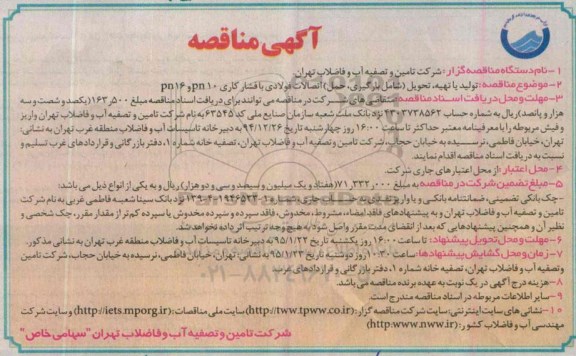 آگهی مناقصه
۱- نام دستگاه مناقصه گزار: شرکت تامین و تصفیه آب و فاضلاب تهران
۲- موضوع مناقصه: تولید یا تهیه، تحویل (شامل بارگیری، حمل) اتصالات فولادی با فشار کاری pn۱۰ و pn۱۶
۳- مهلت و محل دریافت اسناد مناقصه: متقاضیان شرکت در مناقصه می توانند برای دریافت اسناد مناقصه مبلغ ۱۶۳,۵۰۰ (یکصد و شصت و سه
هزار و پانصد) ریال به شماره حساب نزد بانک ملت شعبه سازمان صنایع ملی کد ۶۳۵۴۵ به نام شرکت تامین و تصفیه آب و فاضلاب تهران واریز
و فیش مربوطه را با معرفینامه معتبر حداکثر تا ساعت ۱۶:۰۰ روز چهارشنبه تاریخ ۹۴/۱۲/۲۶ به دبیرخانه تاسیسات آب و فاضلاب منطقه غرب تهران به نشانی:
تهران، خیابان فاطمی، نرسیده به خیابان حجاب، شرکت تامین و تصفیه آب و فاضلاب تهران، تصفیه خانه شماره ۱، دفتر بازرگانی و قراردادهای غرب تسلیم و
نسبت به دریافت اسناد مناقصه اقدام نمایند.
۴- محل اعتبار: از محل اعتبارهای جاری شرکت.
۵- مبلغ تضمین شرکت در مناقصه به مبلغ ۷۱,۳۳۲,۰۰۰ ریال (هفتاد و یک میلیون و سیصد و سی و دو هزار) ریال و به یکی از انواع ذیل می باشد:
-چک بانکی تضمینی، ضمانتنامه بانکی و یا واریز به حساب جاری بانک سینا شعبه فاطمی غربی به نام شرکت
تامین و تصفیه آب و فاضلاب تهران و به پیشنهادهای فاقد امضاء، مشروط، مخدوش، فاقد سپرده و سپرده مخدوش یا سپرده کم تر از مقدار مقرر، چک شخصی و
نظیر آن و همچنین پیشنهادهایی که بعد از انقضای مدت مقرر واصل شود به هیچ وجه ترتیب اثر داده نخواهد شد.
۶- مهلت و محل تحویل پیشنهاد: تا ساعت ۱۶:۰۰ روز یکشنبه تاریخ ۹۵/۱/۲۲ به دبیرخانه تاسیسات آب و فاضلاب منطقه غرب تهران به نشانی مذکور.
۷- زمان و محل گشایش پیشنهادها: ساعت ۱۰:۳۰ روز دوشنبه تاریخ ۹۵/۱/۲۳ به نشانی: تهران، خیابان فاطمی، نرسیده به خیابان حجاب، شرکت تامین
و تصفیه آب و فاضلاب تهران، تصفیه خانه شماره ۱، دفتر بازرگانی و قراردادهای غرب
۸- هزینه درج آگهی در یک نوبت به عهده برنده مناقصه می باشد.
۹- سایر اطلاعات مربوطه در اسناد مناقصه مندرج است.
۱۰- نشانی های سایت اینترنتی: سایت شرکت مناقصه گزار: (http://tww.tpww.co.ir) سایت ملی مناقصات: (http://iets.mporg.ir) و سایت شرکت
مهندسی آب و فاضلاب کشور: (http:www.nww.ir)
شرکت تامین و تصفیه آب و فاضلاب تهران "سهامی خاص"